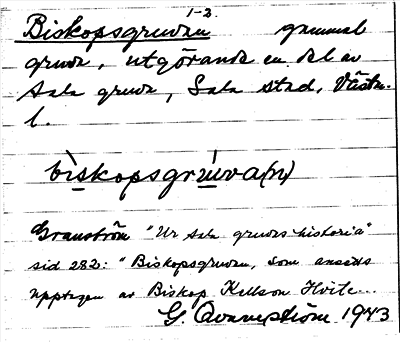 1-2.
Biskopsgruvan gammal
gruva, utgörande en del av
Sala gruva, Sala stad, Västm.
l.
bìskopsgrùva(n)
Granström "Ur Sala gruvas historia"
sid 282: "Biskopsgruvan, som ansetts
upptagen av Biskop Kettson Hvite...
G. Avanström 1943